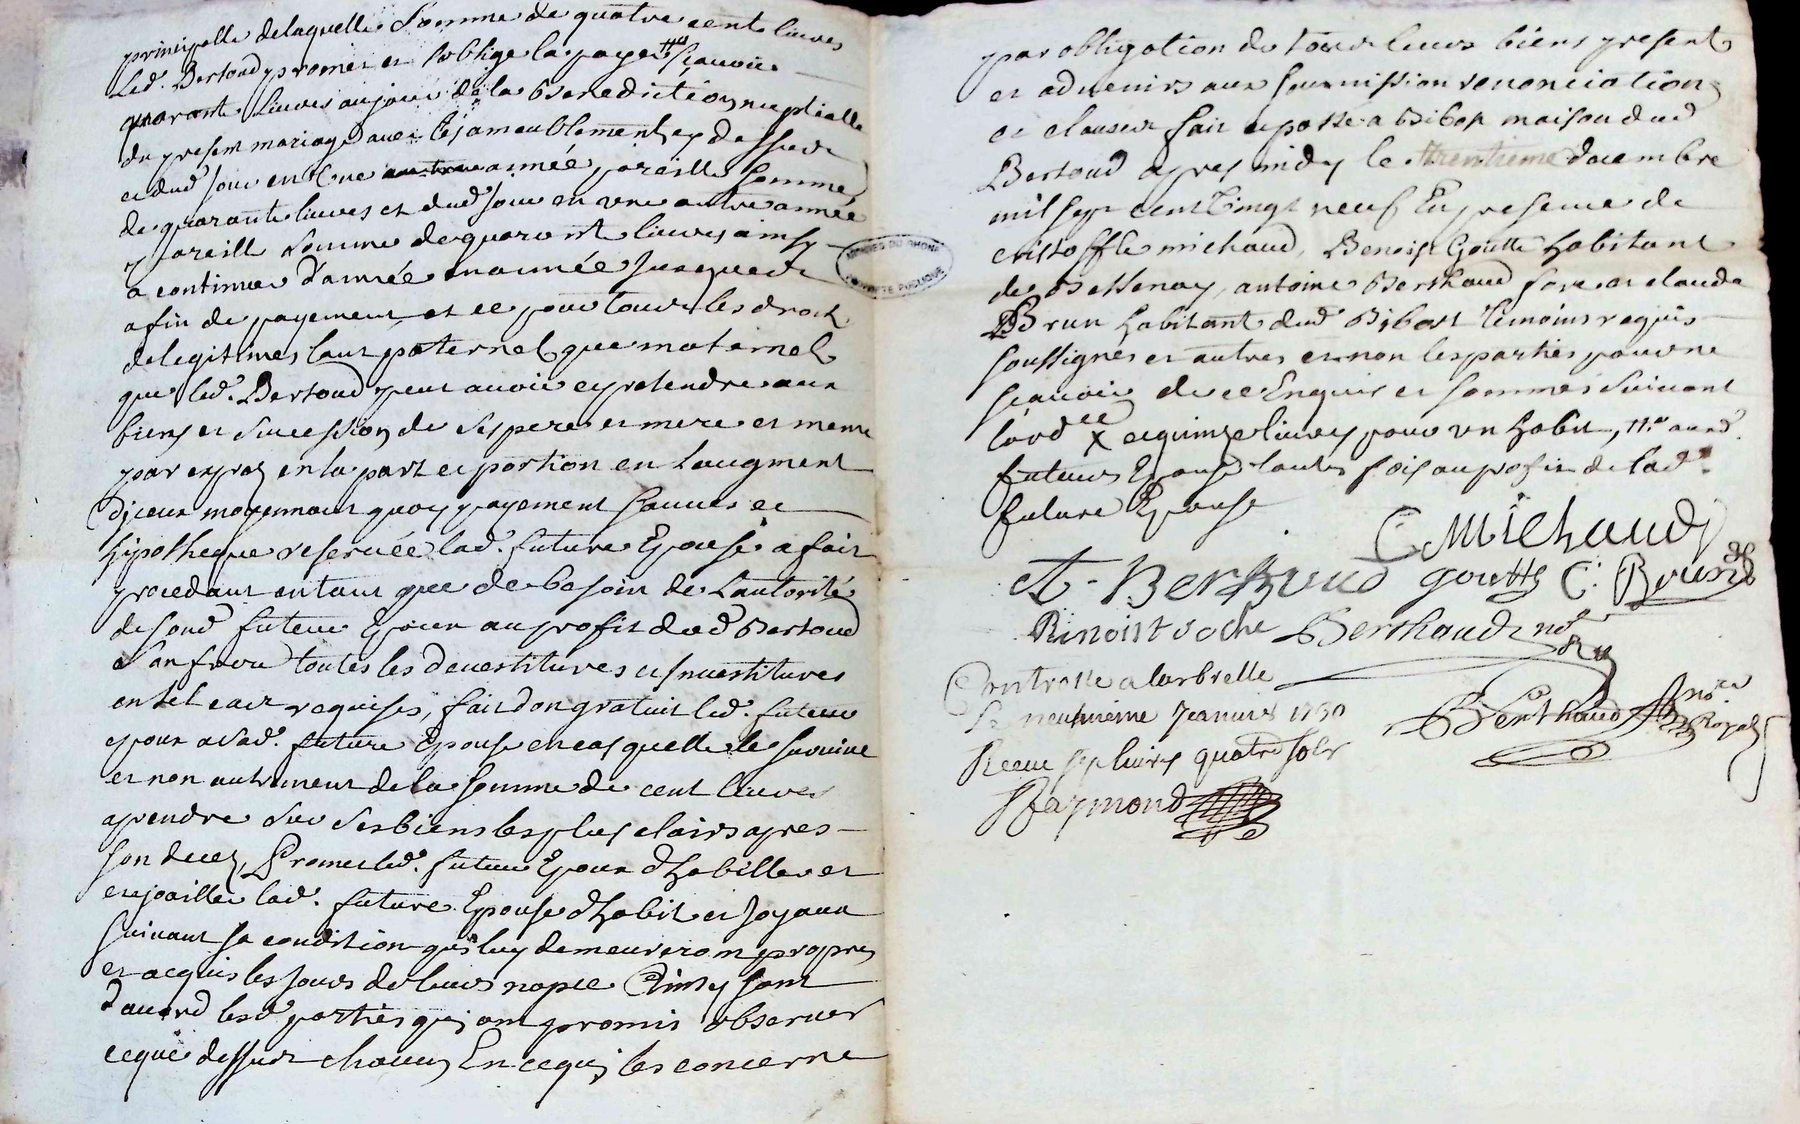 principalle delaquelle Somme de quatre cent livres
led. Bertoud promet et soblige la payer Sçavoir
quarante livres au jour de la Benediction nuptialle
du present mariage avec les ameublements cy dessus
et dud jour en une année pareille somme
de quarante livres et dud jour en une autre année
pareille Somme de quarante livres ainsy
a continuer d'année en année jusques a
afin de payement et ce pour tous les droits
de legitimes tant paternels que maternels
que led. Bertoud peut avoir et pretendre aux
biens et sucession de ses pere et mere et meme
par expres en la part et portion en laugment
diceux moyennant quoy payement sauves et
hipotheque reservée lad. future Epouse a fait
procedant en tant que de besoin de Lautorité
de sond futur Epoux au profit dud Bertoud
Son frere toutes les devestitures et investitures
en tel cas requises, fait don gratuit led. futur
epoux a lad. future Epouse en cas quelle le survive
et non autrement de la somme de cent livres
a prendre Sur ses biens les plus clairs apres
son deces, Promet led. futur Epoux d'habiller et
enjoailler lad. future Epouse d'habit et Joyaux
suivant sa condition qui luy demeureront propres
et acquis les jours de leurs nopce Ainsy sont
d'acord lesd parties qui ont promis observer
ceque dessus chacun En ce qui les concerne
par obligation de tous leurs biens present
et advenirs aux soumission renonciation
et clauses fait et passé a Bibost maison dud
Bertoud apres midy le trentieme decembre
mil sept cent vingt neuf En presence de
cristoffle michaud, Benoist Goutte habitant
de Bessenay, antoine Berthaud fore et claude
Brun habitant dud Bibost temoins requis
soussignés et autres et non les parties pour ne
sçavoir de ce Enquis et sommés Suivant
lord.ce X et quinze livres pour un habit,
futurs Epouse toutes fois au profit de lad.
future Epouse
C Michaud
A. Berthaud goutte C. Brun
Binoist Berthaud
Controllé a larbrelle
Le neufvième Janvier 1730
Receu sept livres quatre sols
Berthaud no.re Royal
Raymond
ARCHIVES DU RHONE